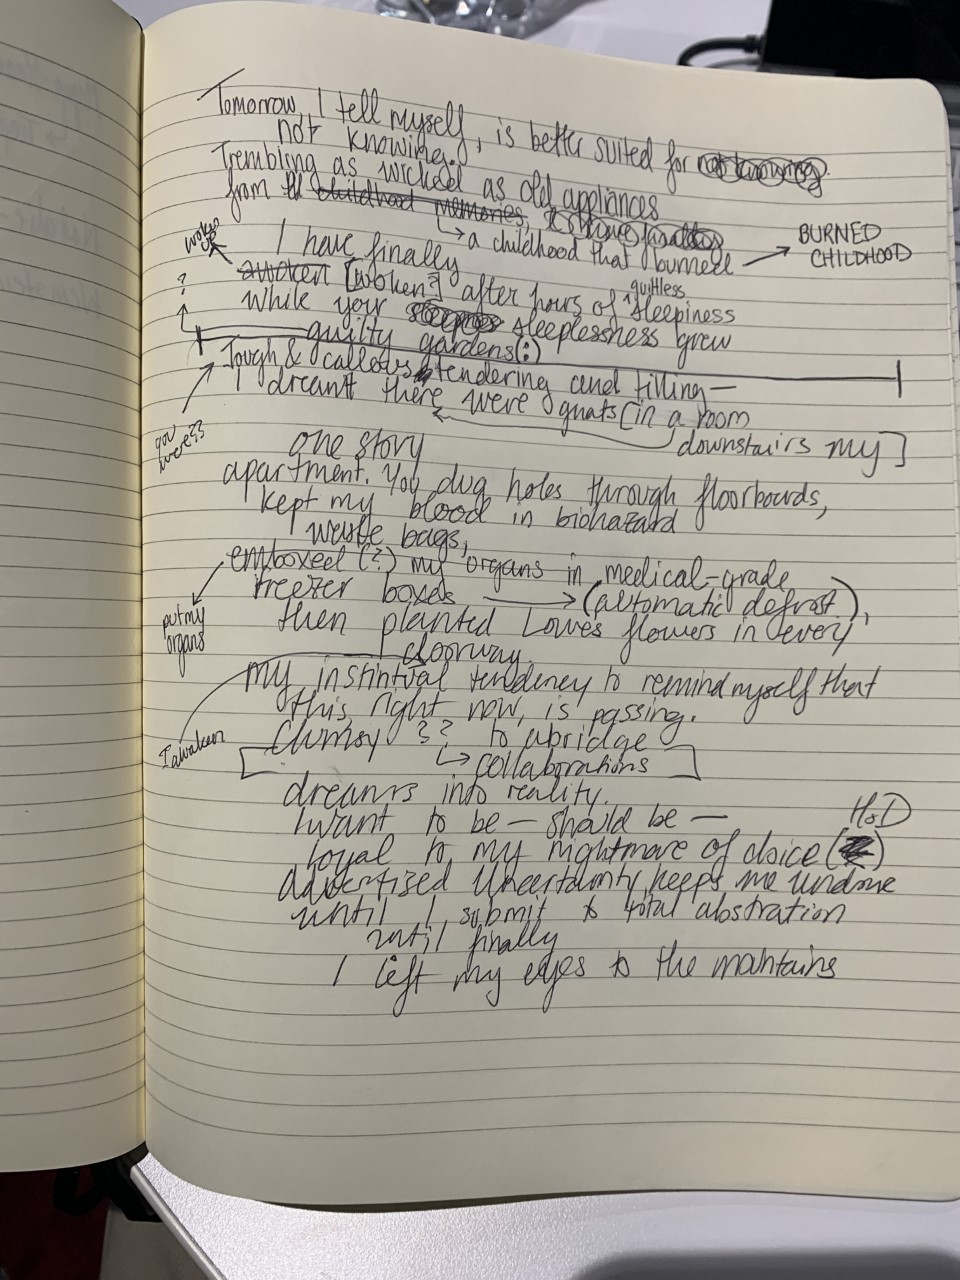 Tomorrow, I tell myself, is better suited for not knowing.
not knowing.
Trembling as wicked as old appliances
from childhood memories,
a childhood that burned
BURNED
CHILDHOOD
I have finally
woken up
awoken [woken?] after hours of guiltless sleepiness
?
while your sleeplessness grew
guilty gardens(:)
Tough & callous, tendering and tilling—
I dreamt there were gnats [in a room
downstairs my]
you were??
one story
apartment. You dug holes through floorboards,
kept my blood in biohazard
waste bags,
emboxed (?) my organs in medical-grade
freezer boxes (automatic defrost),
put my
organs
then planted Lowes flowers in every
doorway
my instintual tendency to remind myself that
this, right now, is passing.
I awaken
Clumsy ?? to abridge
collaborations
dreams into reality.
I want to be — should be —
H&D
loyal to my nightmare of choice
advertized uncertainty keeps me undone
until I submit to total abstration
until finally
I left my eyes to the mantains